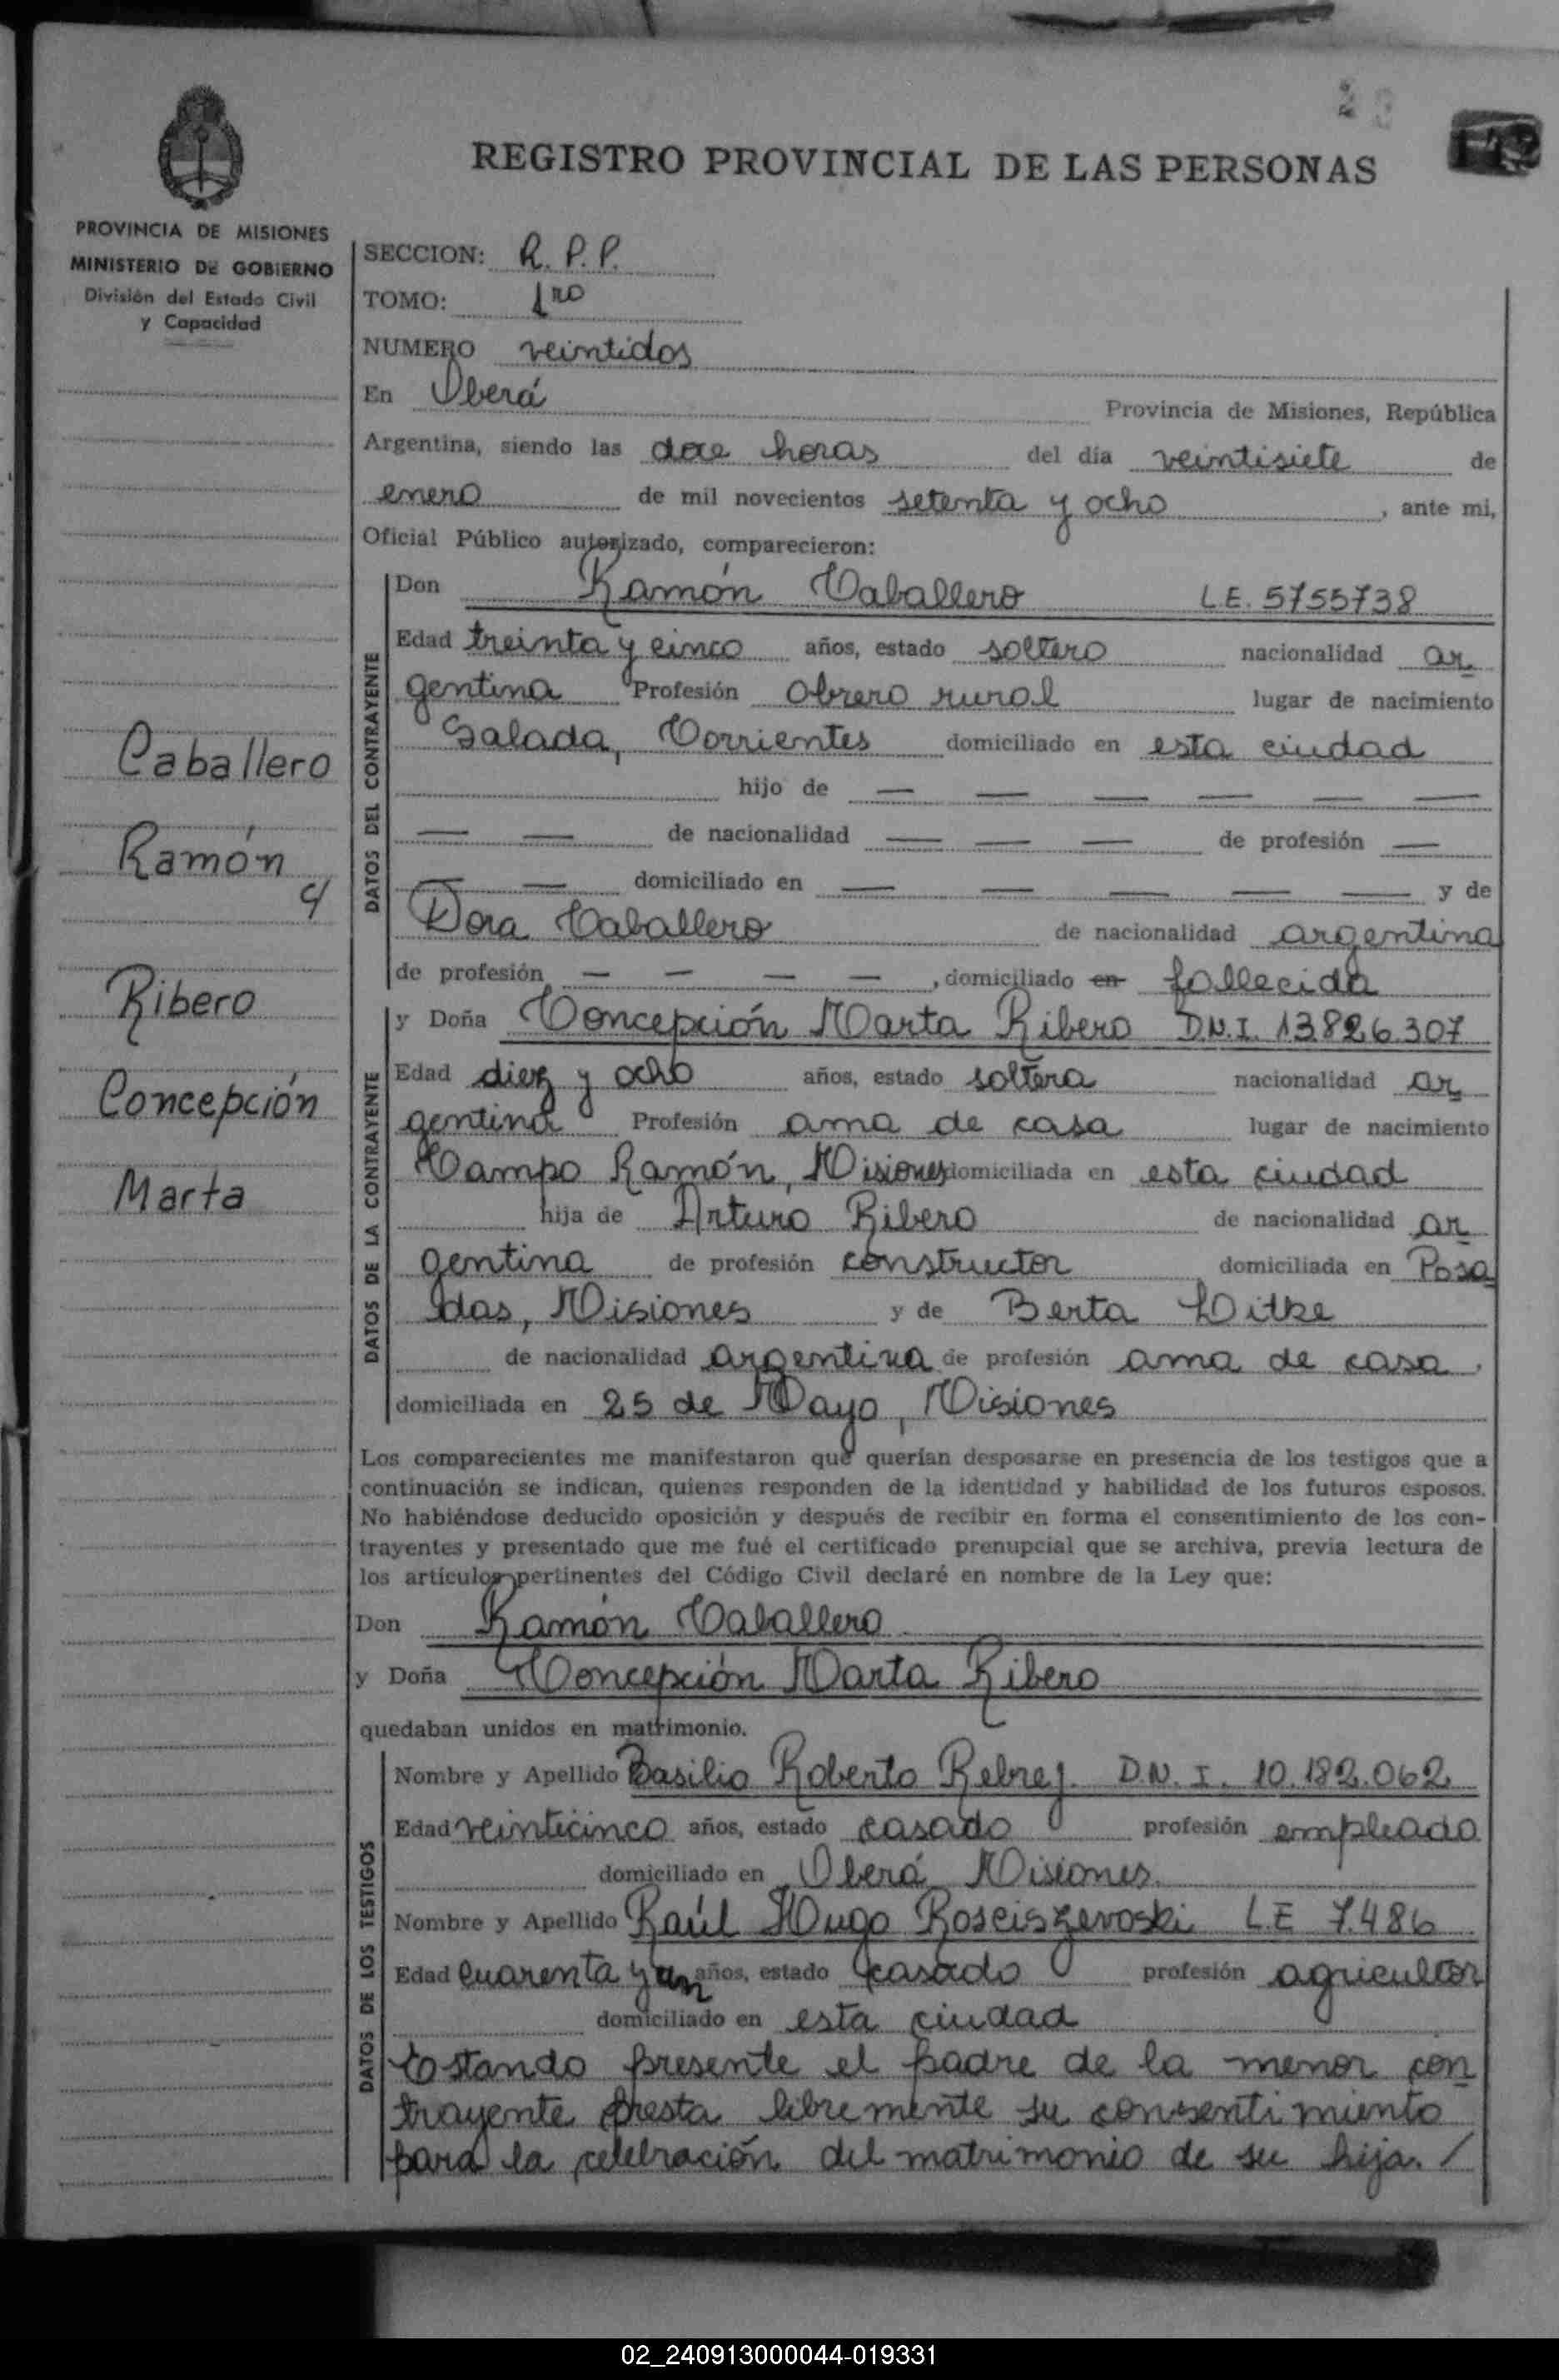 REGISTRO PROVINCIAL DE LAS PERSONAS
PROVINCIA DE MISIONES
MINISTERIO DE GOBIERNO
División del Estado Civil
y Capacidad
SECCION: R. P. P.
TOMO: 1ro
NUMERO veintidos
En Oberá Provincia de Misiones, República
Argentina, siendo las doce horas del día veintisiete de
enero de mil novecientos setenta y ocho, ante mi,
Oficial Público autorizado, comparecieron:
DATOS DEL CONTRAYENTE
Don Ramón Caballero L.E. 5755738
Edad treinta y cinco años, estado soltero nacionalidad ar
gentina Profesión obrero rural lugar de nacimiento
Salada, Corrientes domiciliado en esta ciudad
hijo de — — — — — —
— — de nacionalidad — — — de profesión —
— — domiciliado en — — — — — y de
Dora Caballero de nacionalidad argentina
de profesión — — — —, domiciliado en fallecida
DATOS DE LA CONTRAYENTE
y Doña Concepción Marta Ribero D.N.I. 13.826.307
Edad diez y ocho años, estado soltera nacionalidad ar
gentina Profesión ama de casa lugar de nacimiento
Campo Ramón, Misiones domiciliada en esta ciudad
hija de Arturo Ribero de nacionalidad ar
gentina de profesión constructor domiciliada en Posa
das, Misiones y de Berta Witke
de nacionalidad argentina de profesión ama de casa,
domiciliada en 25 de Mayo, Misiones
Los comparecientes me manifestaron que querían desposarse en presencia de los testigos que a
continuación se indican, quienes responden de la identidad y habilidad de los futuros esposos.
No habiéndose deducido oposición y después de recibir en forma el consentimiento de los con-
trayentes y presentado que me fué el certificado prenupcial que se archiva, previa lectura de
los artículos pertinentes del Código Civil declaré en nombre de la Ley que:
Don Ramón Caballero
y Doña Concepción Marta Ribero
quedaban unidos en matrimonio.
DATOS DE LOS TESTIGOS
Nombre y Apellido Basilio Roberto Rebrej. D.N.I. 10.182.062
Edad veinticinco años, estado casado profesión empleado
domiciliado en Oberá Misiones
Nombre y Apellido Raúl Hugo Rosciszevoski L.E 7.486
Edad cuarenta y un años, estado casado profesión agricultor
domiciliado en esta ciudad
Estando presente el padre de la menor con
trayente presta libremente su consentimiento
para la celebración del matrimonio de su hija. /
Caballero
Ramón
y
Ribero
Concepción
Marta
02_240913000044-019331